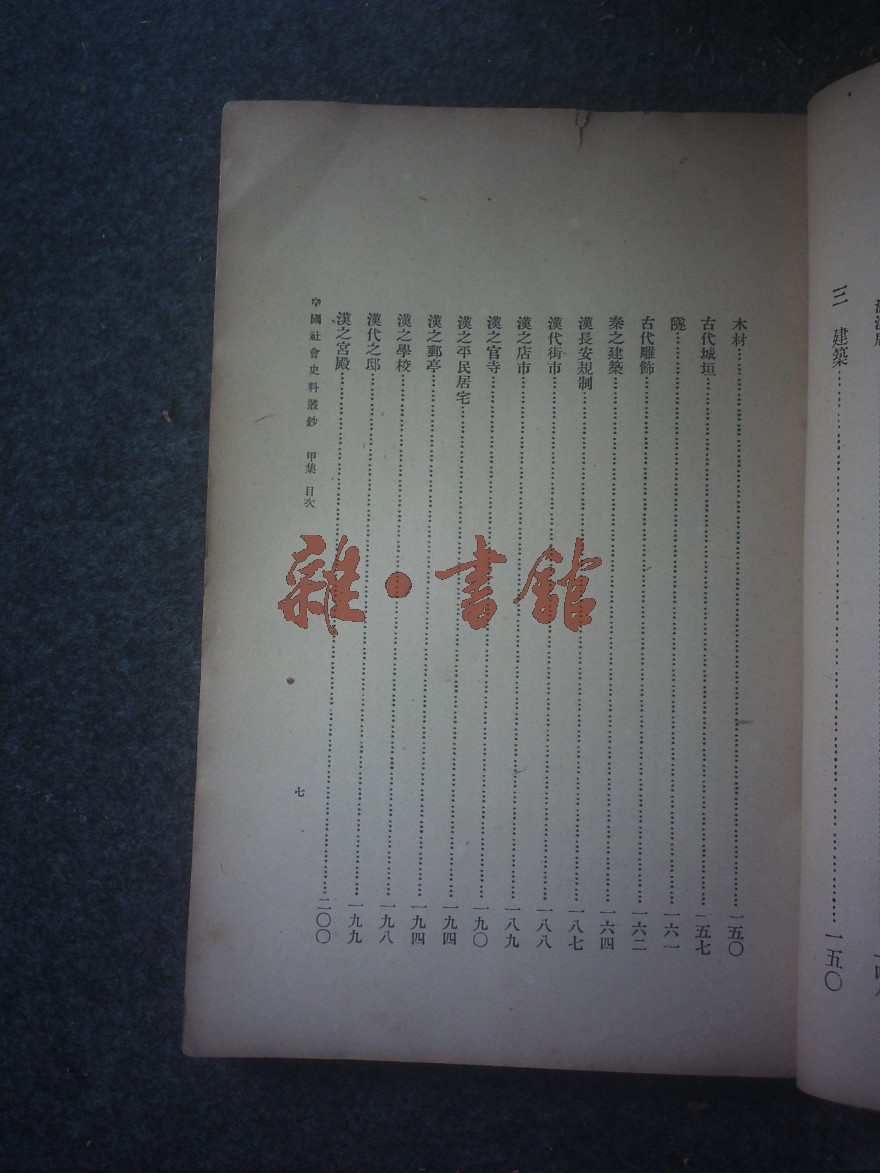 三　建築……一五〇
木材……一五〇
古代城垣……一五七
隧……一六一
古代雕飾……一六二
秦之建築……一六四
漢長安規制……一八七
漢代街市……一八八
漢之店市……一八九
漢之官寺……一九〇
漢之平民居宅……一九四
漢之郵亭……一九四
漢之學校……一九八
漢代之邸……一九九
漢之宮殿……二〇〇
中國社會史料叢鈔　甲集　目次
七
雜·書館